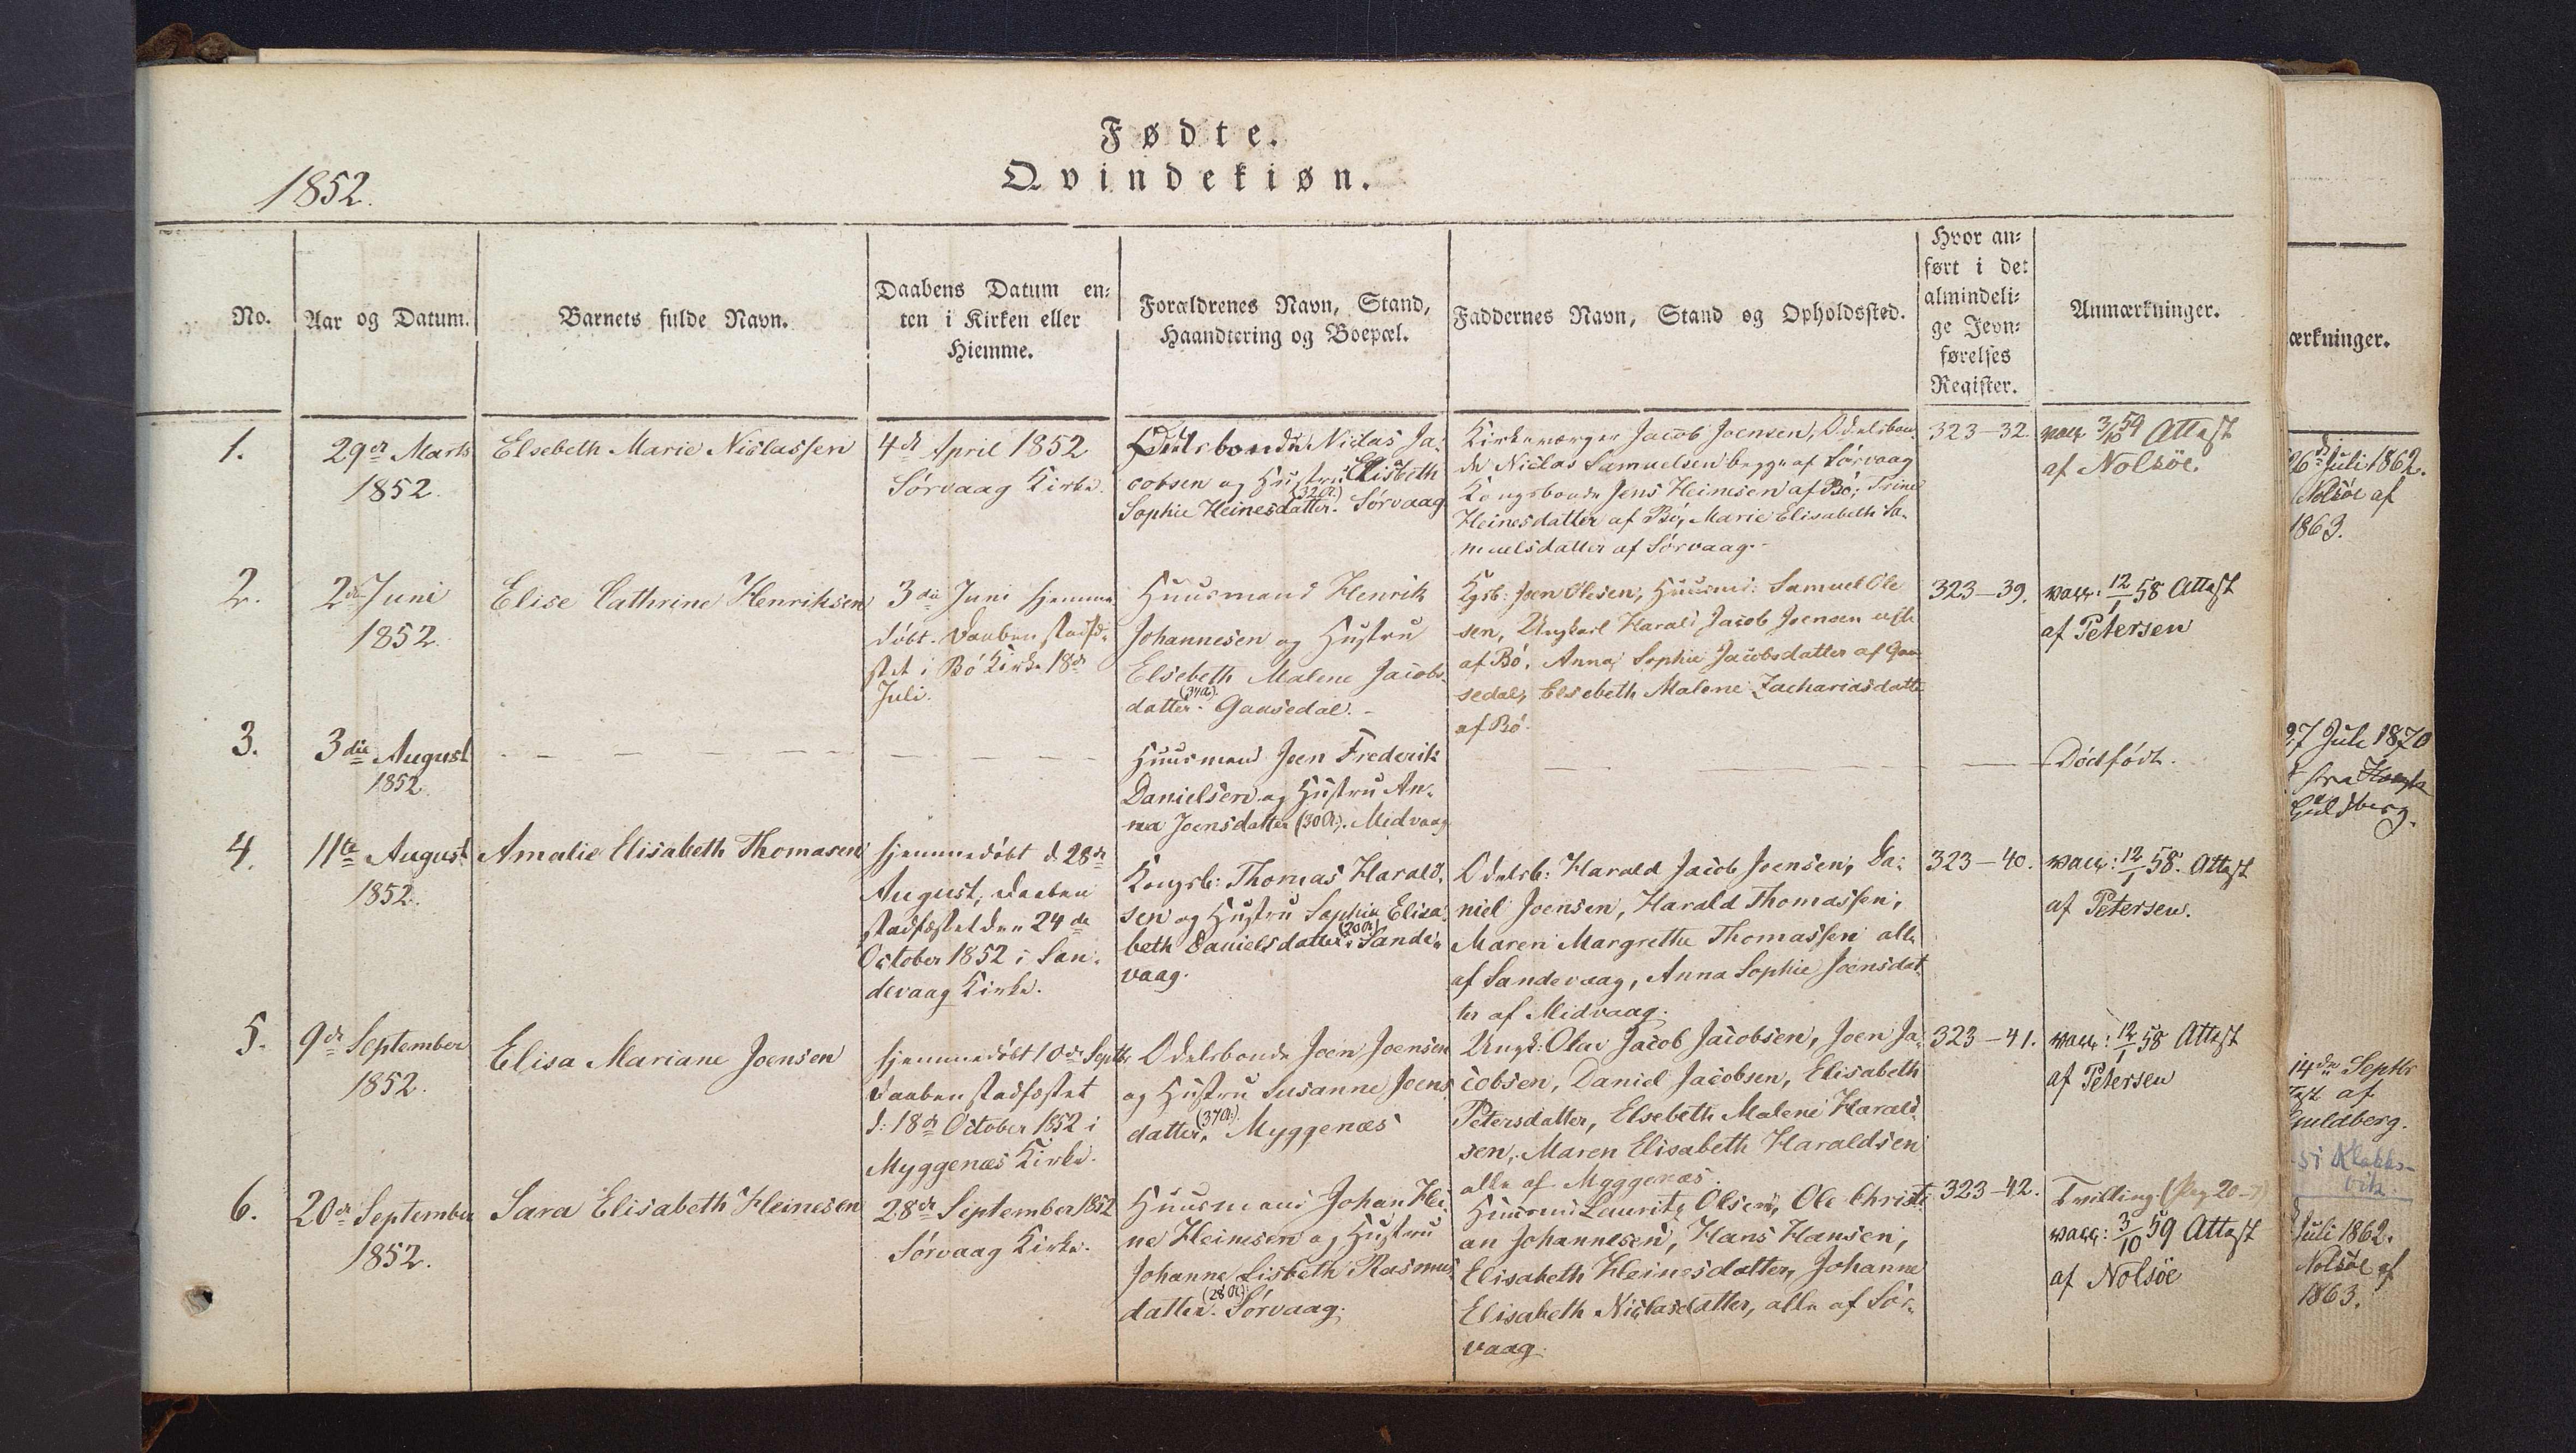 Fødte.
Qvindekiøn.
1852.
No.
Aar og Datum.
Barnets fulde Navn.
Daabens Datum en-
ten i Kirken eller
Hiemme.
Forældrenes Navn, Stand,
Haandtering og Boepæl.
Faddernes Navn, Stand og Opholdssted.
Hvor an-
ført i det
almindeli-
ge Jevn-
førelses
Register.
Anmærkninger.
1.
29de Marts
1852.
Elsebeth Marie Niclassen
4de April 1852
Sørvaag Kirke.
Odelsbonde Niclas Ja-
cobsen og Hustru Elisbeth
Sophie Heinesdatter. (32 A.) Sørvaag
Kirkeværger Jacob Joensen, Odelsbon-
de Niclas Samuelsen begge af Sørvaag
Kongsbonde Jens Heinesen af Bø; Trine
Heinesdatter af Bø, Marie Elisabeth Sa-
muelsdatter af Sørvaag.
323-32.
vacc. 3/10 59 Attest
af Nolsøe.
2.
2den Juni
1852.
Elise Cathrine Henriksen
3die Juni hjemme-
døbt. Daaben stadfæ-
stet i Bø Kirke 18de
Juli.
Huusmand Henrik
Johannesen og Hustru
Elsebeth Malene Jacobs-
datter (34 A.). Gaasedal.
Kgsb: Joen Olesen, Huusmd: Samuel Ole-
sen, Ungkarl Harald Jacob Joensen alle
af Bø. Anna Sophie Jacobsdatter af Gaa-
sedal, Elsebeth Malene Zachariasdatter
af Bø.
323-39.
vacc: 12/1 58 Attest
af Petersen
3.
3die August
1852.
Huusmand Joen Frederik
Danielsen og Hustru An-
na Joensdatter (30 A.). Midvaag
Dødfødt.
4.
11te August
1852.
Amalie Elisabeth Thomasen
hjemmedøbt d. 28de
August, Daaben
stadfæstet den 24de
October 1852 i San-
devaag Kirke.
Kongsb: Thomas Harald-
sen og Hustru Sophie Elisa-
beth Danielsdatter (20 A.). Sande-
vaag.
Odelsb: Harald Jacob Joensen, Da-
niel Joensen, Harald Thomassen,
Maren Margrethe Thomassen alle
af Sandevaag, Anna Sophie Joensdat-
ter af Midvaag.
323-40.
vacc: 12/1 58. Attest
af Petersen.
5.
9de September
1852.
Elisa Mariane Joensen
hjemmedøbt 10de Septbr.
Daaben stadfæstet
d: 18de October 1852 i
Myggenæs Kirke.
Odelsbonde Joen Joensen
og Hustru Susanne Joens-
datter (37 A.). Myggenæs
Ungk: Olav Jacob Jacobsen, Joen Ja-
cobsen, Daniel Jacobsen, Elisabeth
Petersdatter, Elsebeth Malene Harald-
sen, Maren Elisabeth Haraldsen
alle af Myggenæs.
323-41.
vacc: 12/1 58 Attest
af Petersen
6.
20de September
1852.
Sara Elisabeth Heinesen
28de September 1852
Sørvaag Kirke.
Huusmand Johan Hei-
ne Heinesen og Hustru
Johanne Lisbeth Rasmus-
datter (28 A.). Sørvaag.
Huusmd Lauritz Olsen, Ole Christi-
an Johannesen, Hans Hansen,
Elisabeth Heinesdatter, Johanne
Elisabeth Niclasdatter, alle af Sør-
vaag.
323-42.
Tvilling (Pag 20-9)
vacc: 3/10 59 Attest
af Nolsøe
ærkninger.
26de Juli 1862.
Nolsøe af
1863.
27 Juli 1870
fra
Guldberg.
14de Septbr
af
Guldberg.
i Klaks-
vik.
Juli 1862.
Nolsøe af
1863.